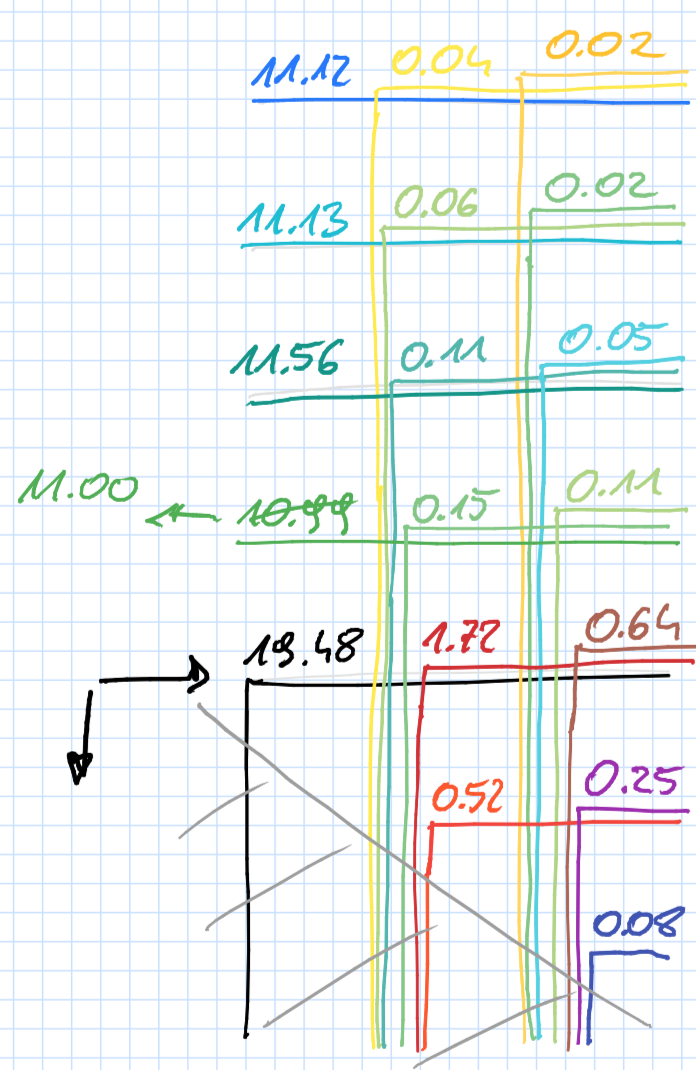 11.12 0.04 0.02
11.13 0.06 0.02
11.56 0.11 0.05
11.00 10.99 0.15 0.11
19.48 1.72 0.64
0.52 0.25
0.08